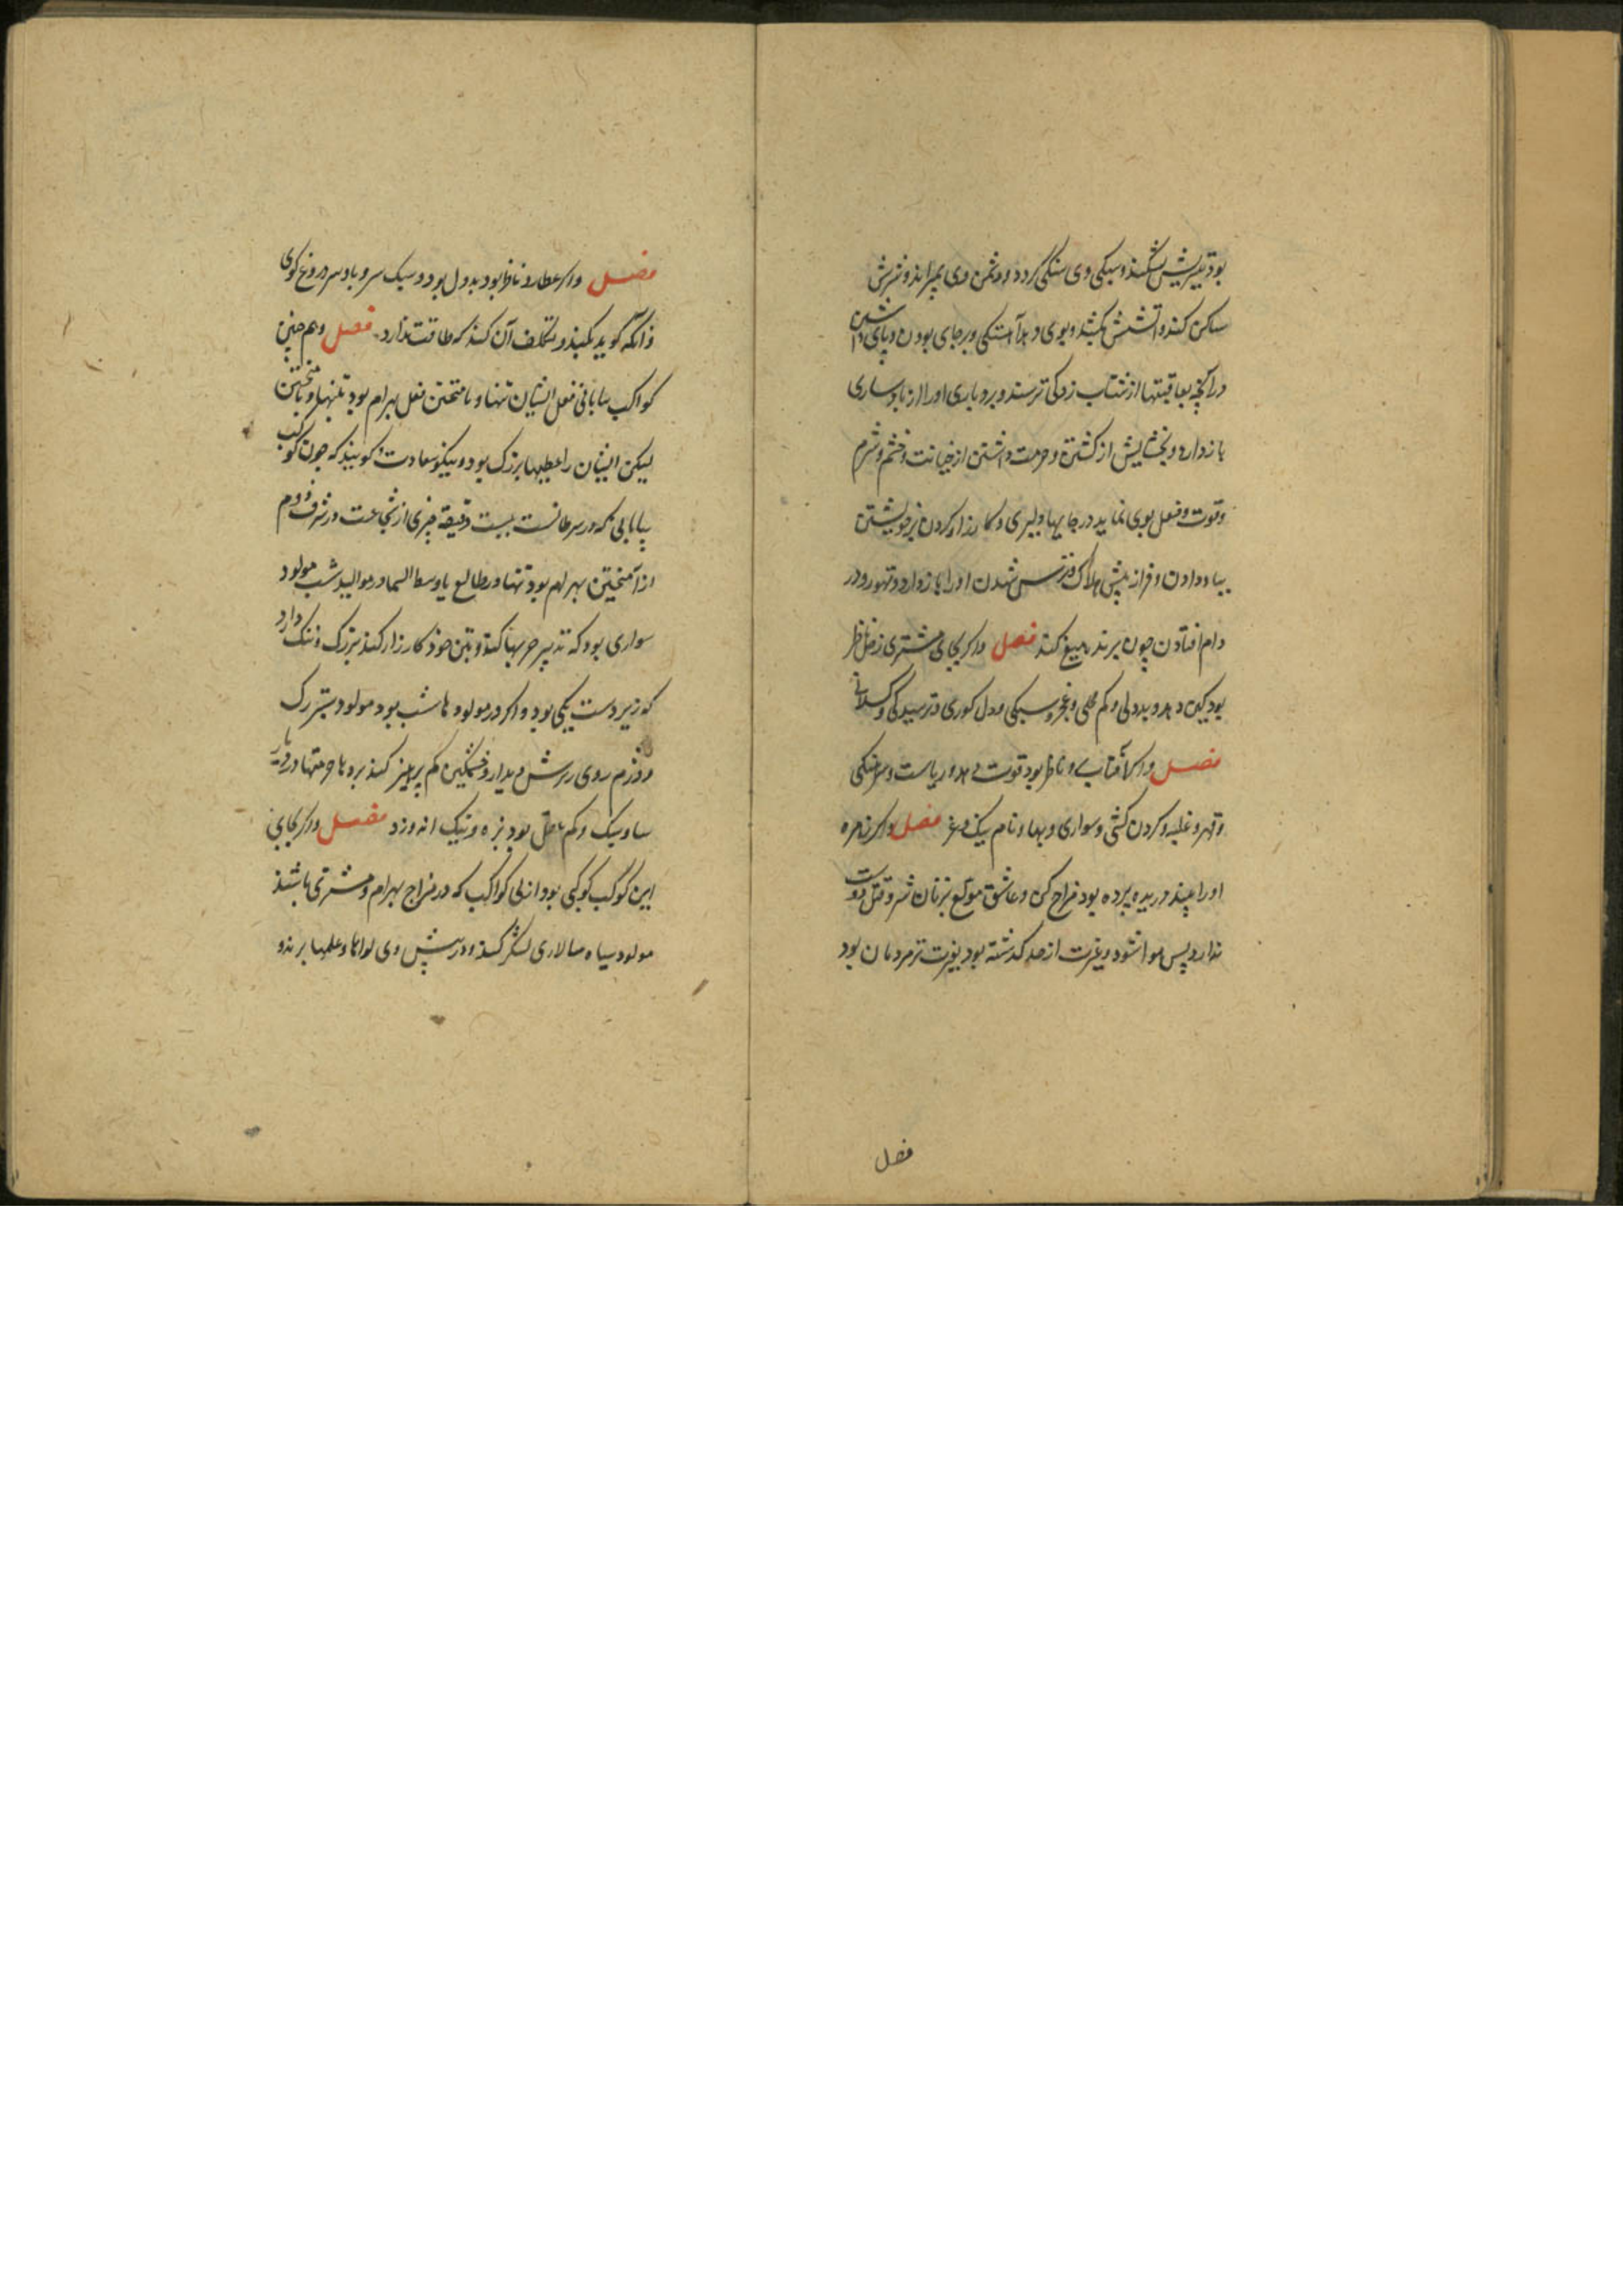 بود تیزیش بشکند و سبکی وی سنگی کردد و دشمن وی بمیراند و نزش
ساکن کند و آتشش بکشد و بوی دهد آهستکی و برجای بودن و پای داشتن
در آنچه بعاقبتها از شتاب زدکی ترسند و بردباری او را از بادساری
بازدارد و بخشایش از کشتن و حرمت داشتن از خیانت و خشم و شرم
وقوت و فعل بوی نماید در جایها دلیری و کارزار کردن بر خویشتن
بباد دادن و فراز پیش هلاک و ترس شدن او را بازدارد و تهور و در
دام افتادن چون پرند میغ کند فصل واکر بجای مشتری زحل ناظر
بود کین دهد و بددلی و کم خلی و عجز و سبکی و دل کوری و ترسیدکی و کسلانی
فصل واکر آفتاب و ناظر بود قوت دهد و ریاست و سرهنکی
وقهر و غلبه و کردن کشی و سواری و بها و نام نیک و عز فصل واکر زهره
او را بیند دریده پرده بود مزاح کن و عاشق مولع بزنان شر و قتل دوست
ندارد پس هوا شود و غیرت از حد کذشته بود بغیرت تر مردمان بود
فصل
فصل واکر عطارد ناظر بود بددل بود و سبک سر و بادسر دروغ کوی
و آنکه کوید نکند و تکلف آن کند که طاقت ندارد فصل و هم چنین
کواکب بیابانی فعل ایشان تنها و بامتحتن فعل بهرام بود تنها و بآمیختن
لیکن ایشان را عطیتها بزرک بود و نیکو سعادت و کویند که چون کوکب
بیابانی که در سرطانست بیست دقیقه چیزی از شجاعت در شرف دوم
از آمیختن بهرام بود تنها در طالع یا وسط السما در موالید شب مولود
سواری بود که تدبیر حربها کند و بتن خود کارزار کند بزرک و ننک دارد
که زیردست یکی بود و اکر در مولود ها شب بود مولود بتر رک
و دژم روی و زشت دیدار و خشمکین کم پرهیز کند برد با حرمتها در وی
ساو سبک و کم عقل بود بزه و نیک اندوزد فصل واکر بجای
این کوکب کوکبی بود از ان کواکب که در مزاج بهرام و مشتری باشند
مولود سپاه سالاری لشکر کند و در پیش وی لواها و علمها برند و